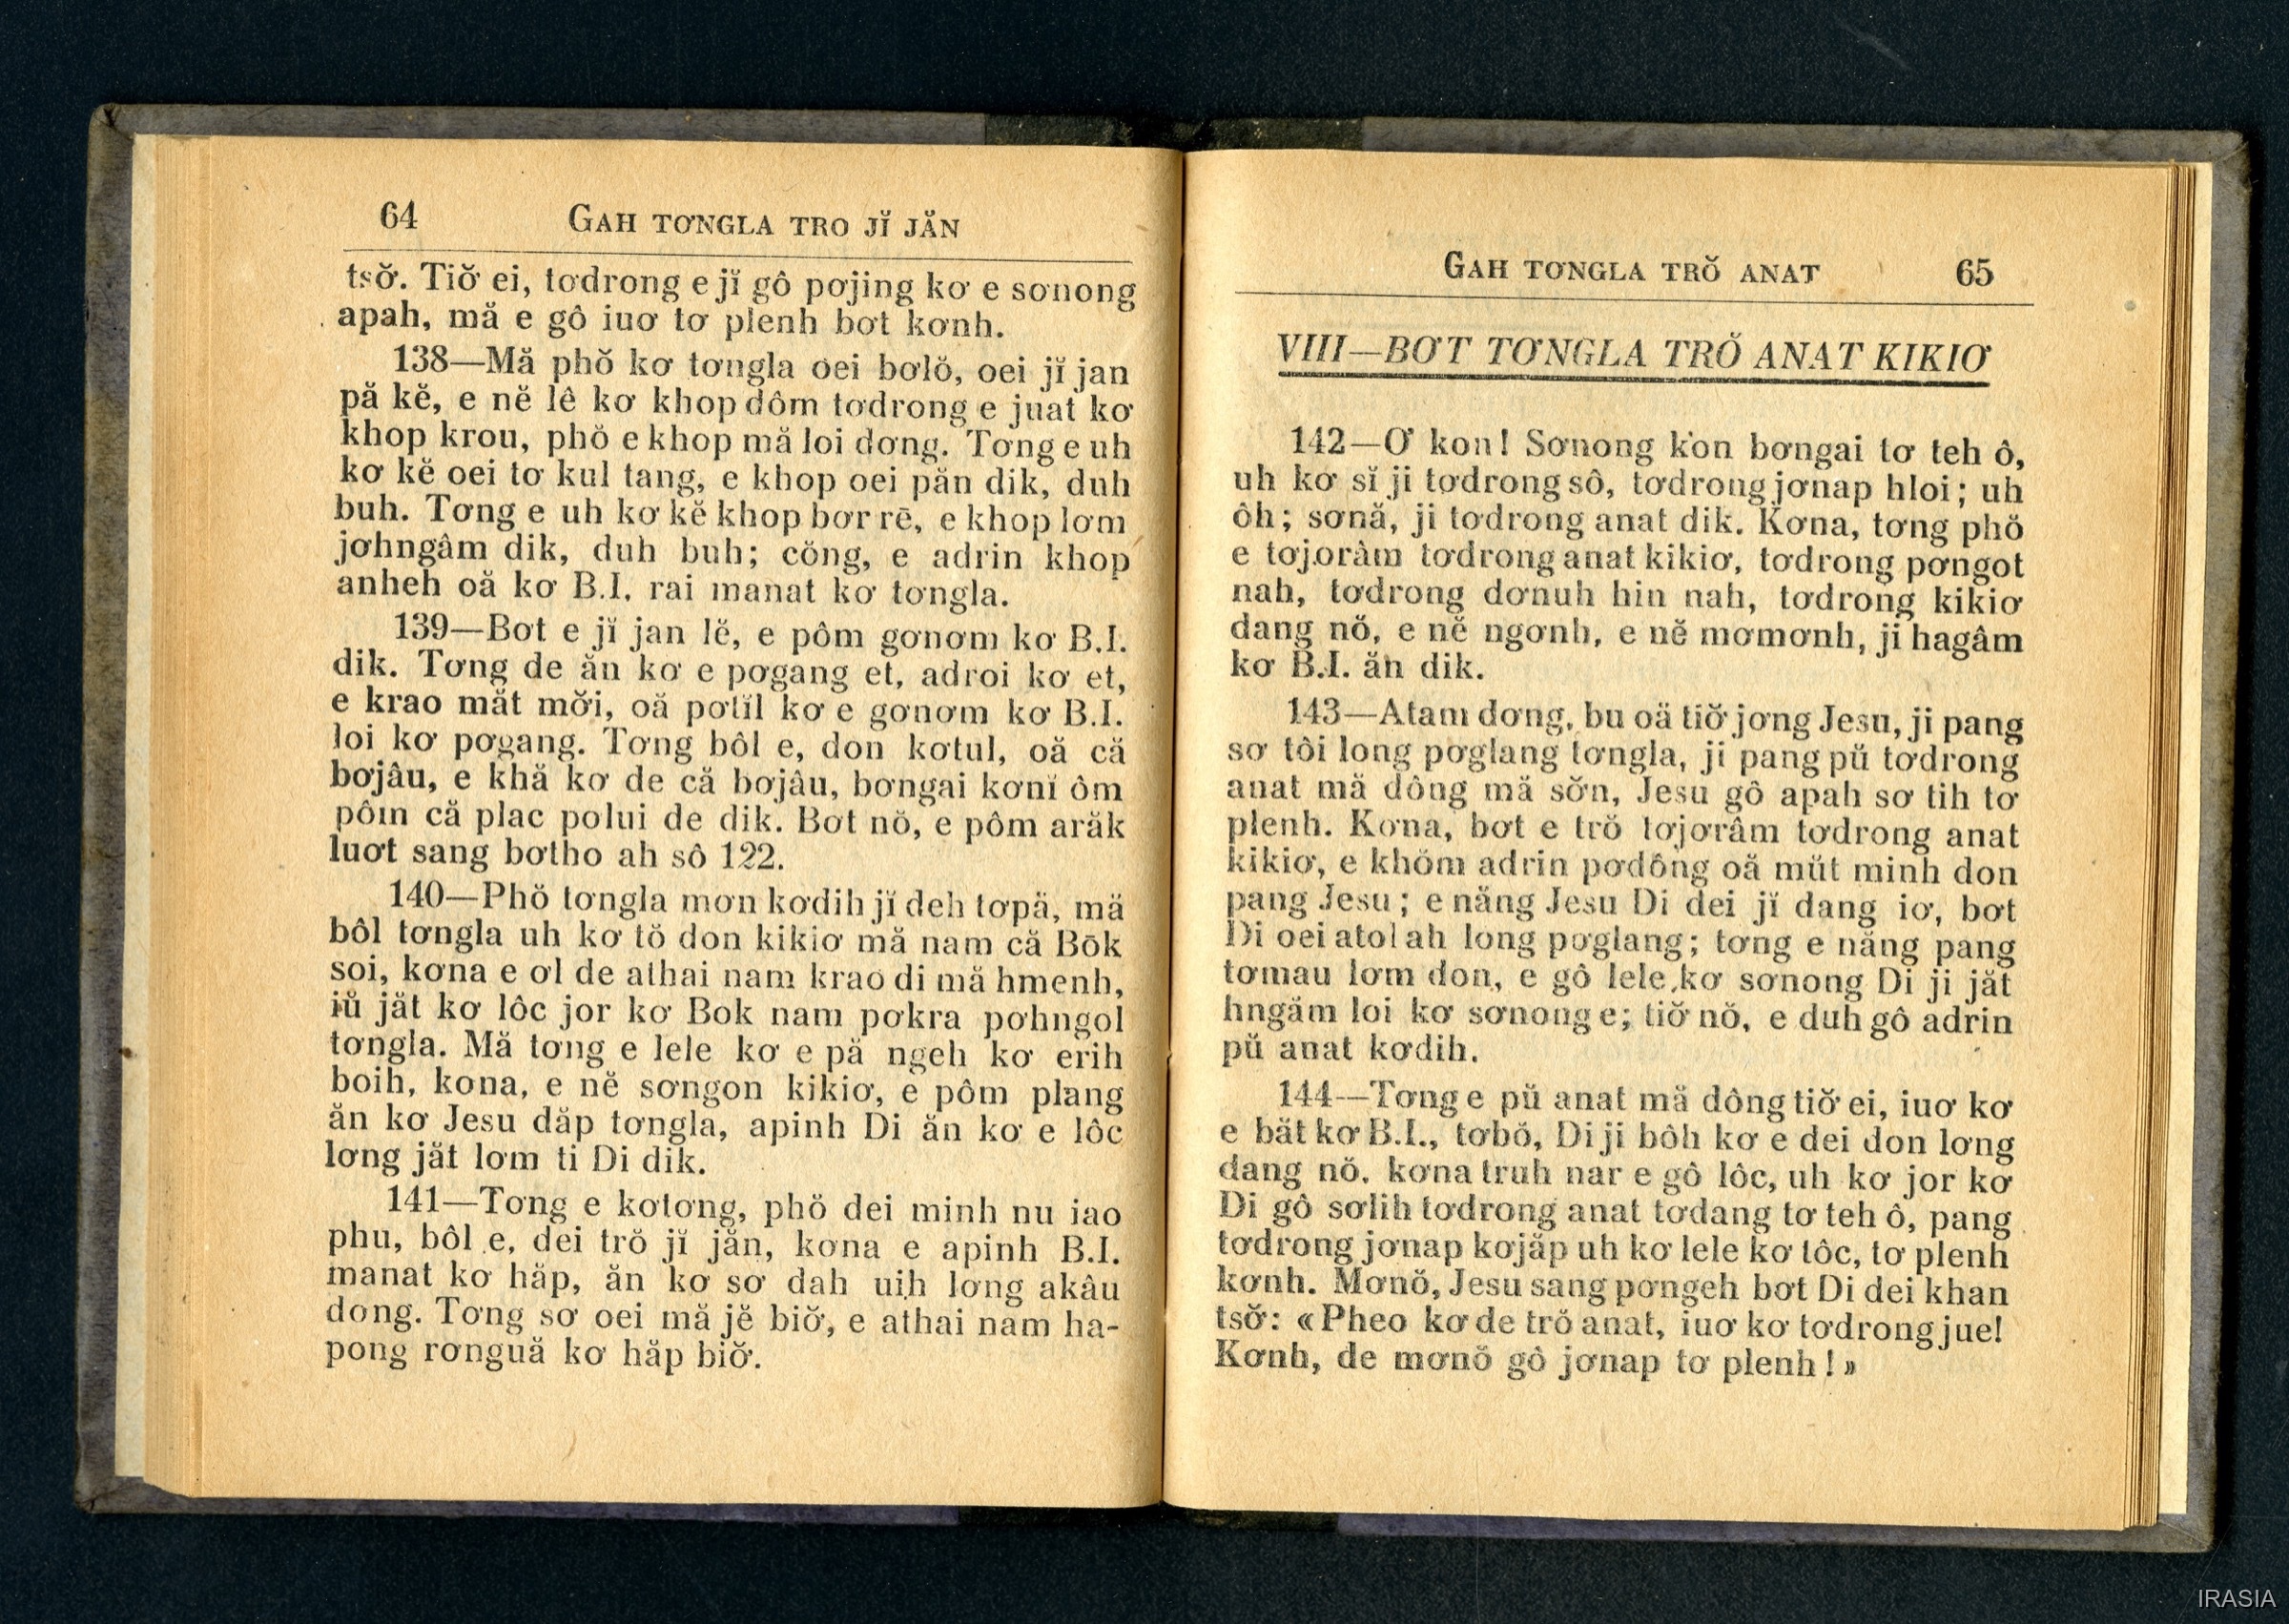 64 GAH TƠNGLA TRO JĬ JĂN
tsơ̆. Tiơ̆ ei, tơdrong e jĭ gô pơjing kơ e sơnong
apah, mă e gô iuơ tơ plenh bơt kơnh.
138—Mă phŏ kơ tơngla oei bơlŏ, oei jĭ jan
pă kĕ, e nĕ lê kơ khop dôm tơdrong e juat kơ
khop krou, phŏ e khop mă loi dơng. Tơng e uh
kơ kĕ oei tơ kul tang, e khop oei păn dik, duh
buh. Tơng e uh kơ kĕ khop bơr rē, e khop lơm
jơhngâm dik, duh buh; cŏng, e adrin khop
anheh oă kơ B.I. rai manat kơ tơngla.
139—Bơt e jĭ jan lĕ, e pôm gơnơm kơ B.I.
dik. Tơng de ăn kơ e pơgang et, adroi kơ et,
e krao măt mơ̆i, oă pơtĭl kơ e gơnơm kơ B.I.
loi kơ pơgang. Tơng bôl e, don kơtul, oă că
bơjâu, e khă kơ de că bơjâu, bơngai kơnĭ ôm
pôm că plac polui de dik. Bơt nŏ, e pôm arăk
luơt sang bơtho ah sô 122.
140—Phŏ tơngla mơn kơdih jĭ deh tơpă, mă
bôl tơngla uh kơ tŏ don kikiơ mă nam că Bōk
soi, kơna e ơl de athai nam krao di mă hmenh,
iŭ jăt kơ lôc jor kơ Bok nam pơkra pơhngol
tơngla. Mă tơng e lele kơ e pă ngeh kơ erih
boih, kona, e nĕ sơngon kikiơ, e pôm plang
ăn kơ Jesu dăp tơngla, apinh Di ăn kơ e lôc
lơng jăt lơm ti Di dik.
141—Tơng e kơtơng, phŏ dei minh nu iao
phu, bôl e, dei trŏ jĭ jăn, kơna e apinh B.I.
manat kơ hăp, ăn kơ sơ dah uih lơng akâu
dơng. Tơng sơ oei mă jĕ biơ̆, e athai nam ha-
pong rơnguă kơ hăp biơ̆.
GAH TƠNGLA TRŎ ANAT 65
VIII—BƠT TƠNGLA TRŎ ANAT KIKIƠ
142—Ơ kon! Sơnong kon bơngai tơ teh ô,
uh kơ sĭ ji tơdrong sô, tơdrong jơnap hloi; uh
ôh; sơnă, ji tơdrong anat dik. Kơna, tơng phŏ
e tơjorâm tơdrong anat kikiơ, tơdrong pơngot
nah, tơdrong dơnuh hin nah, tơdrong kikiơ
dang nŏ, e nĕ ngơnh, e nĕ mơmơnh, ji hagâm
kơ B.I. ăn dik.
143—Atam dơng, bu oă tiơ̆ jơng Jesu, ji pang
sơ tôi long pơglang tơngla, ji pang pŭ tơdrong
anat mă dông mă sơ̆n, Jesu gô apah sơ tih tơ
plenh. Kơna, bơt e trŏ tơjơrâm tơdrong anat
kikiơ, e khŏm adrin pơdông oă mŭt minh don
pang Jesu; e năng Jesu Di dei jĭ dang iơ, bơt
Di oei atol ah long pơglang; tơng e năng pang
tơmau lơm don, e gô lele kơ sơnong Di ji jăt
hngăm loi kơ sơnong e; tiơ̆ nŏ, e duh gô adrin
pŭ anat kơdih.
144—Tơng e pŭ anat mă dông tiơ̆ ei, iuơ kơ
e băt kơ B.I., tơbŏ, Di ji bôh kơ e dei don lơng
dang nŏ, kơna truh nar e gô lôc, uh kơ jor kơ
Di gô sơlih tơdrong anat tơdang tơ teh ô, pang
tơdrong jơnap kơjăp uh kơ lele kơ lôc, tơ plenh
kơnh. Mơnŏ, Jesu sang pơngeh bơt Di dei khan
tsơ̆: «Pheo kơ de trŏ anat, iuơ kơ tơdrong jue!
Kơnh, de mơnŏ gô jơnap tơ plenh!»
IRASIA